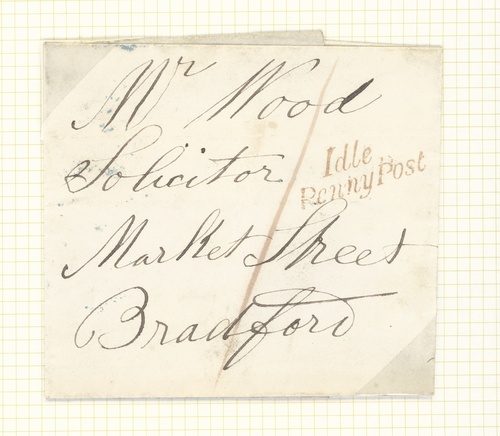 Mr Wood
Solicitor
Idle
Penny Post
Market Street
Bradford